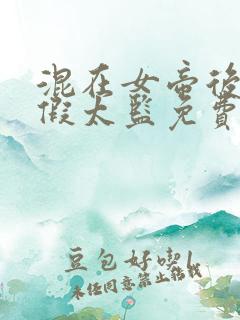 混在女帝後
假太監免費
豆包好喫l
未经同意禁止转载